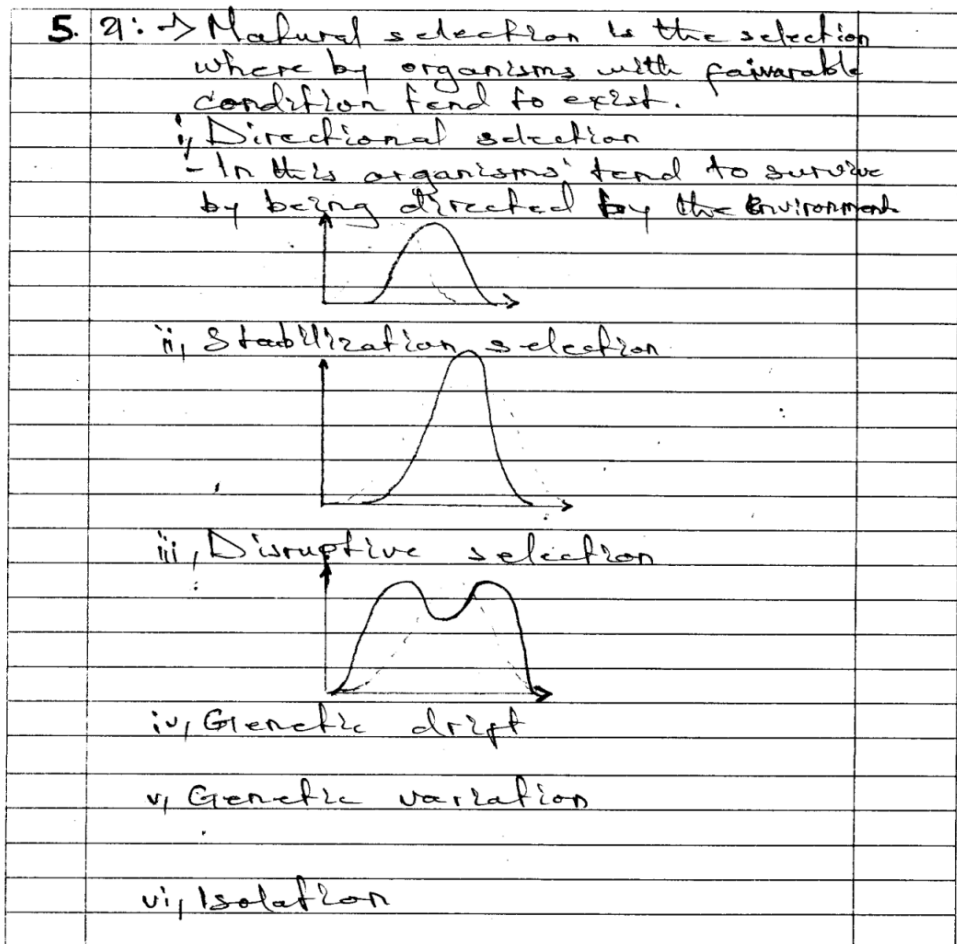 5. a: → Natural selection is the selection
where by organisms with faivarable
condition tend to exist.
i, Directional selection
- In this organisms' tend to survive
by being directed by the Environment
ii, Stabilization selection
iii, Disruptive selection
iv, Genetic drift
v, Genetic variation
vi, Isolation